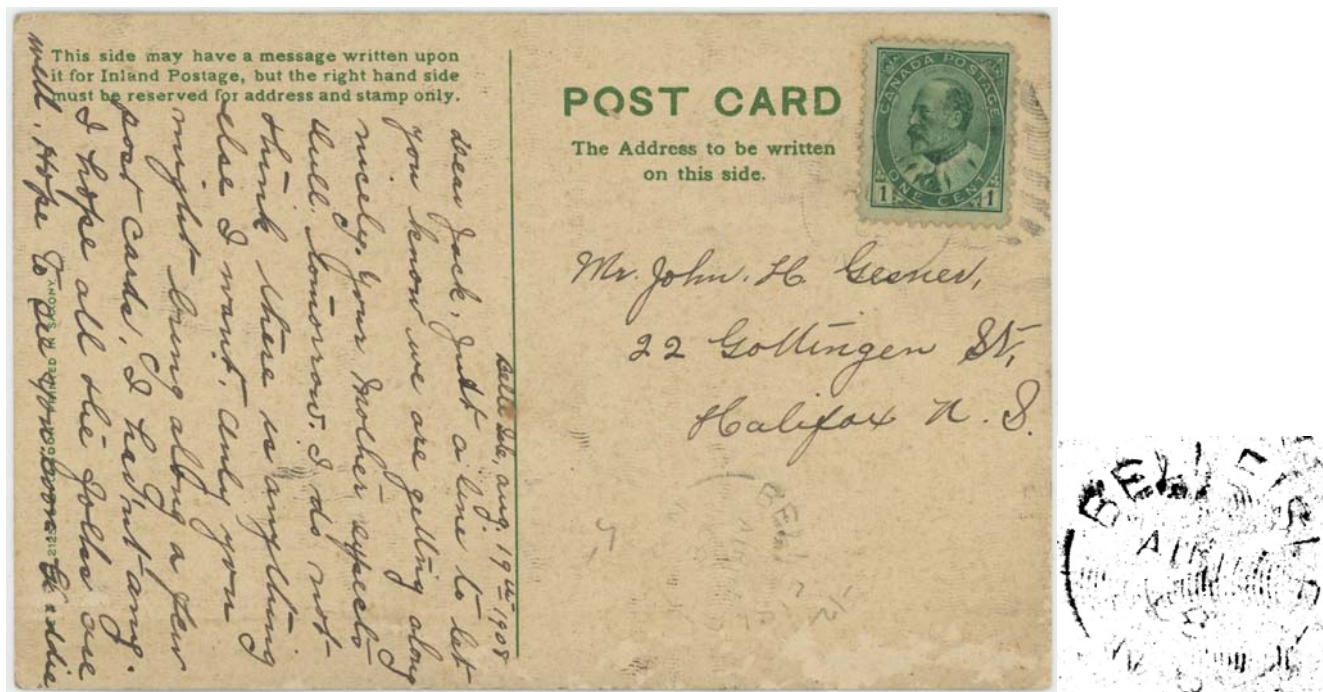 This side may have a message written upon
it for Inland Postage, but the right hand side
must be reserved for address and stamp only.
Belle Isle, Aug. 19th 1908
Dear Jack, Just a line to let
you know we are getting along
nicely. Your Mother expects
Will tomorrow. I do not
think there is anything
else I want. Only you
might bring along a few
post cards, I hav'nt any.
I hope all the folks are
well. Hope to see you soon
Addie
PRINTED IN SAXONY
POST CARD
The Address to be written
on this side.
CANADA POSTAGE
1 ONE CENT 1
Mr. John. H. Gesner,
22 Gottingen St,
Halifax N. S.
BELL
BELL